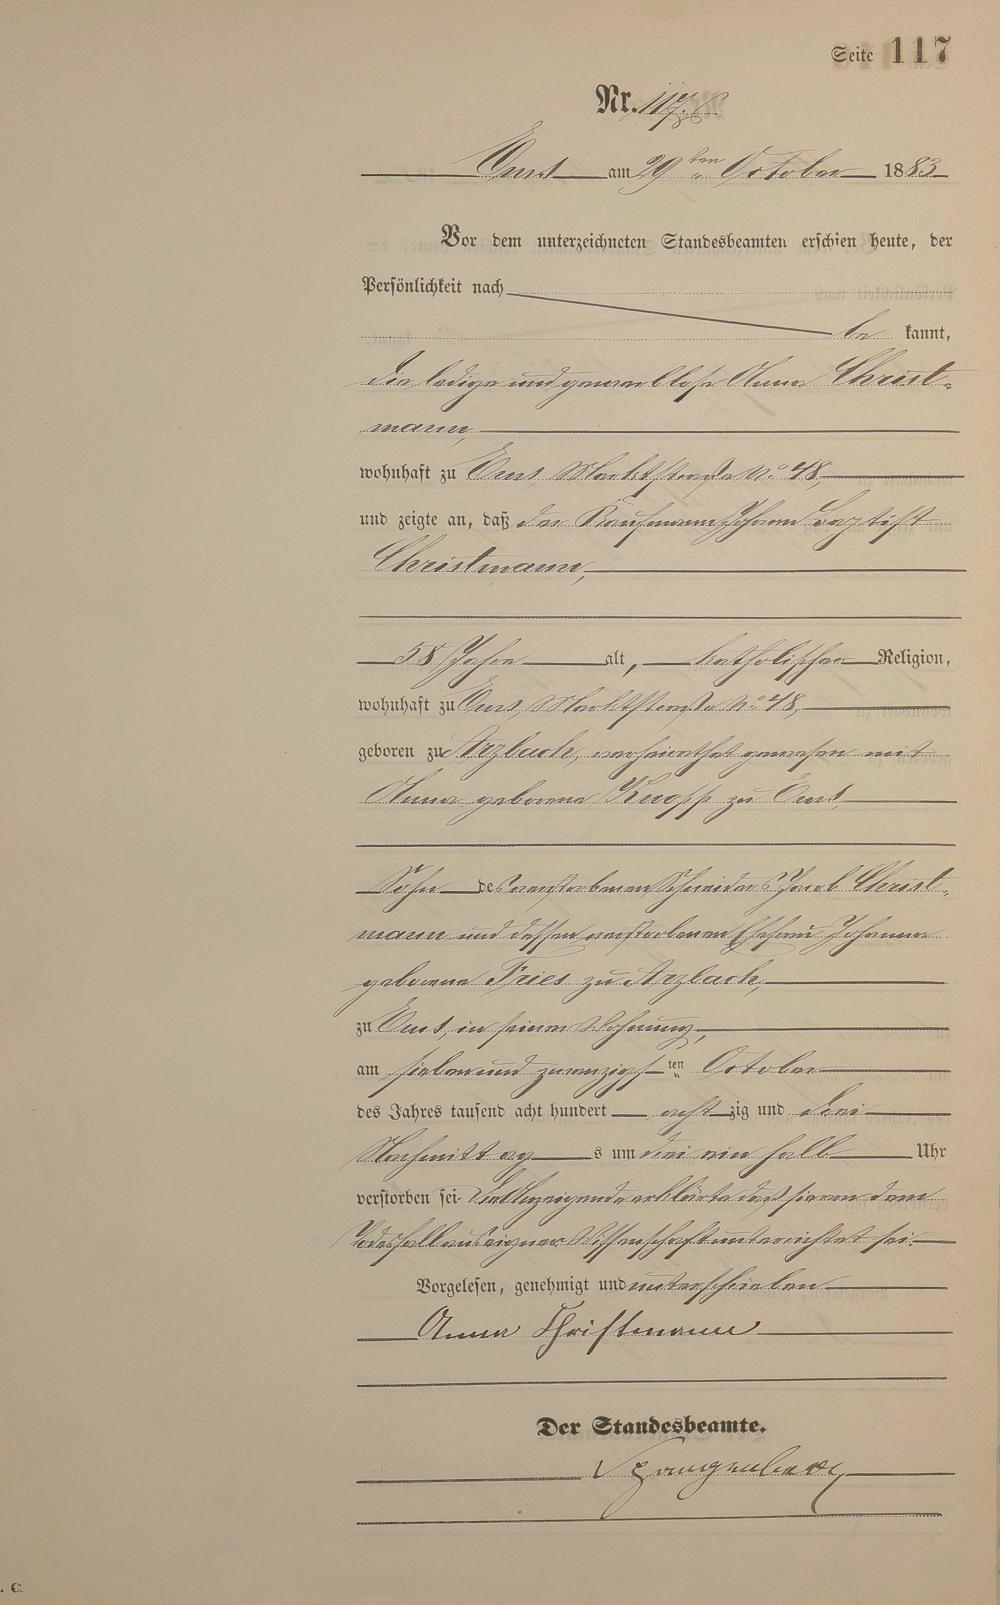 Seite 117
Nr. 117.
Ems am 29ten October 1883
Vor dem unterzeichneten Standesbeamten erschien heute, der
Persönlichkeit nach
be kannt,
die ledige und gewerblose Anna Christ-
mann,
wohnhaft zu Ems, Marktstraße No 48,
und zeigte an, daß der Kaufmann Johann Baptist
Christmann,
58 Jahre alt, katholischer Religion,
wohnhaft zu Ems, Marktstraße No 48,
geboren zu Arzbach, verheirathet gewesen mit
Anna geborene Knopp zu Ems,
Sohn des verstorbenen Schneiders Jacob Christ-
mann und dessen verstorbenen Ehefrau Johanna
geborene Fries zu Arzbach,
zu Ems, in seiner Wohnung,
am sieben und zwanzigsten October
des Jahres tausend acht hundert achtzig und drei
Nachmittags um drei ein halb Uhr
verstorben sei. Die Anzeigende erklärte daß sie von dem
Todesfall aus eigner Wissenschaft unterrichtet sei.
Vorgelesen, genehmigt und unterschrieben
Anna Christmann
Der Standesbeamte.
Spangenberg
. C.